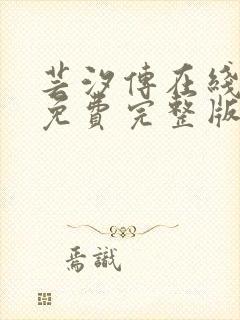 芸汐傳在綫
免費完整版
焉識